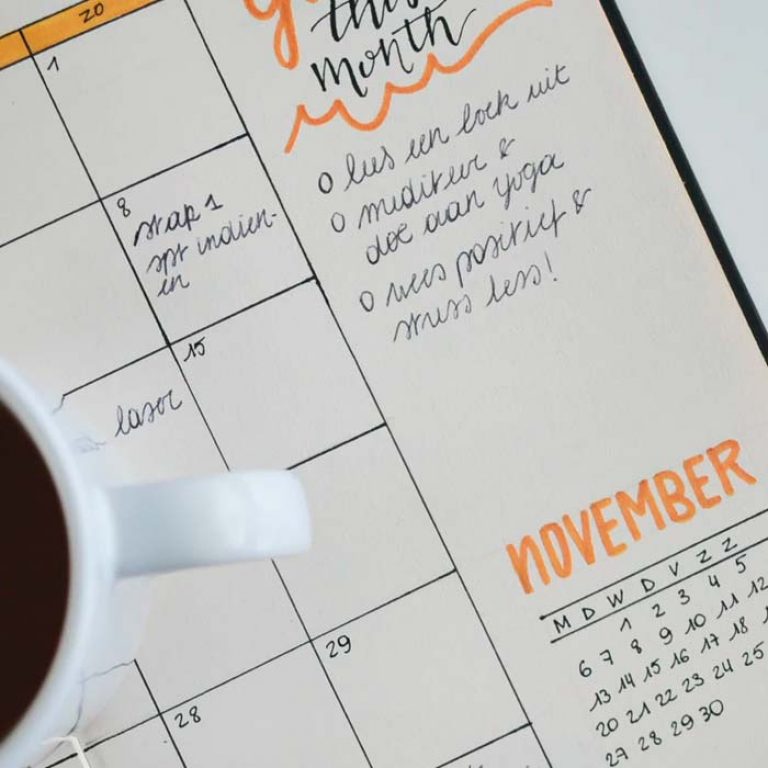 this
month
o lees een boek uit
o mediteer &
doe aan yoga
o wees positief &
stress less!
ZO
1
8
stap 1
spr indien-
en
15
laser
29
28
NOVEMBER
M D W D V Z Z
1 2 3 4 5
6 7 8 9 10 11 12
13 14 15 16 17 18
20 21 22 23 24 25
27 28 29 30